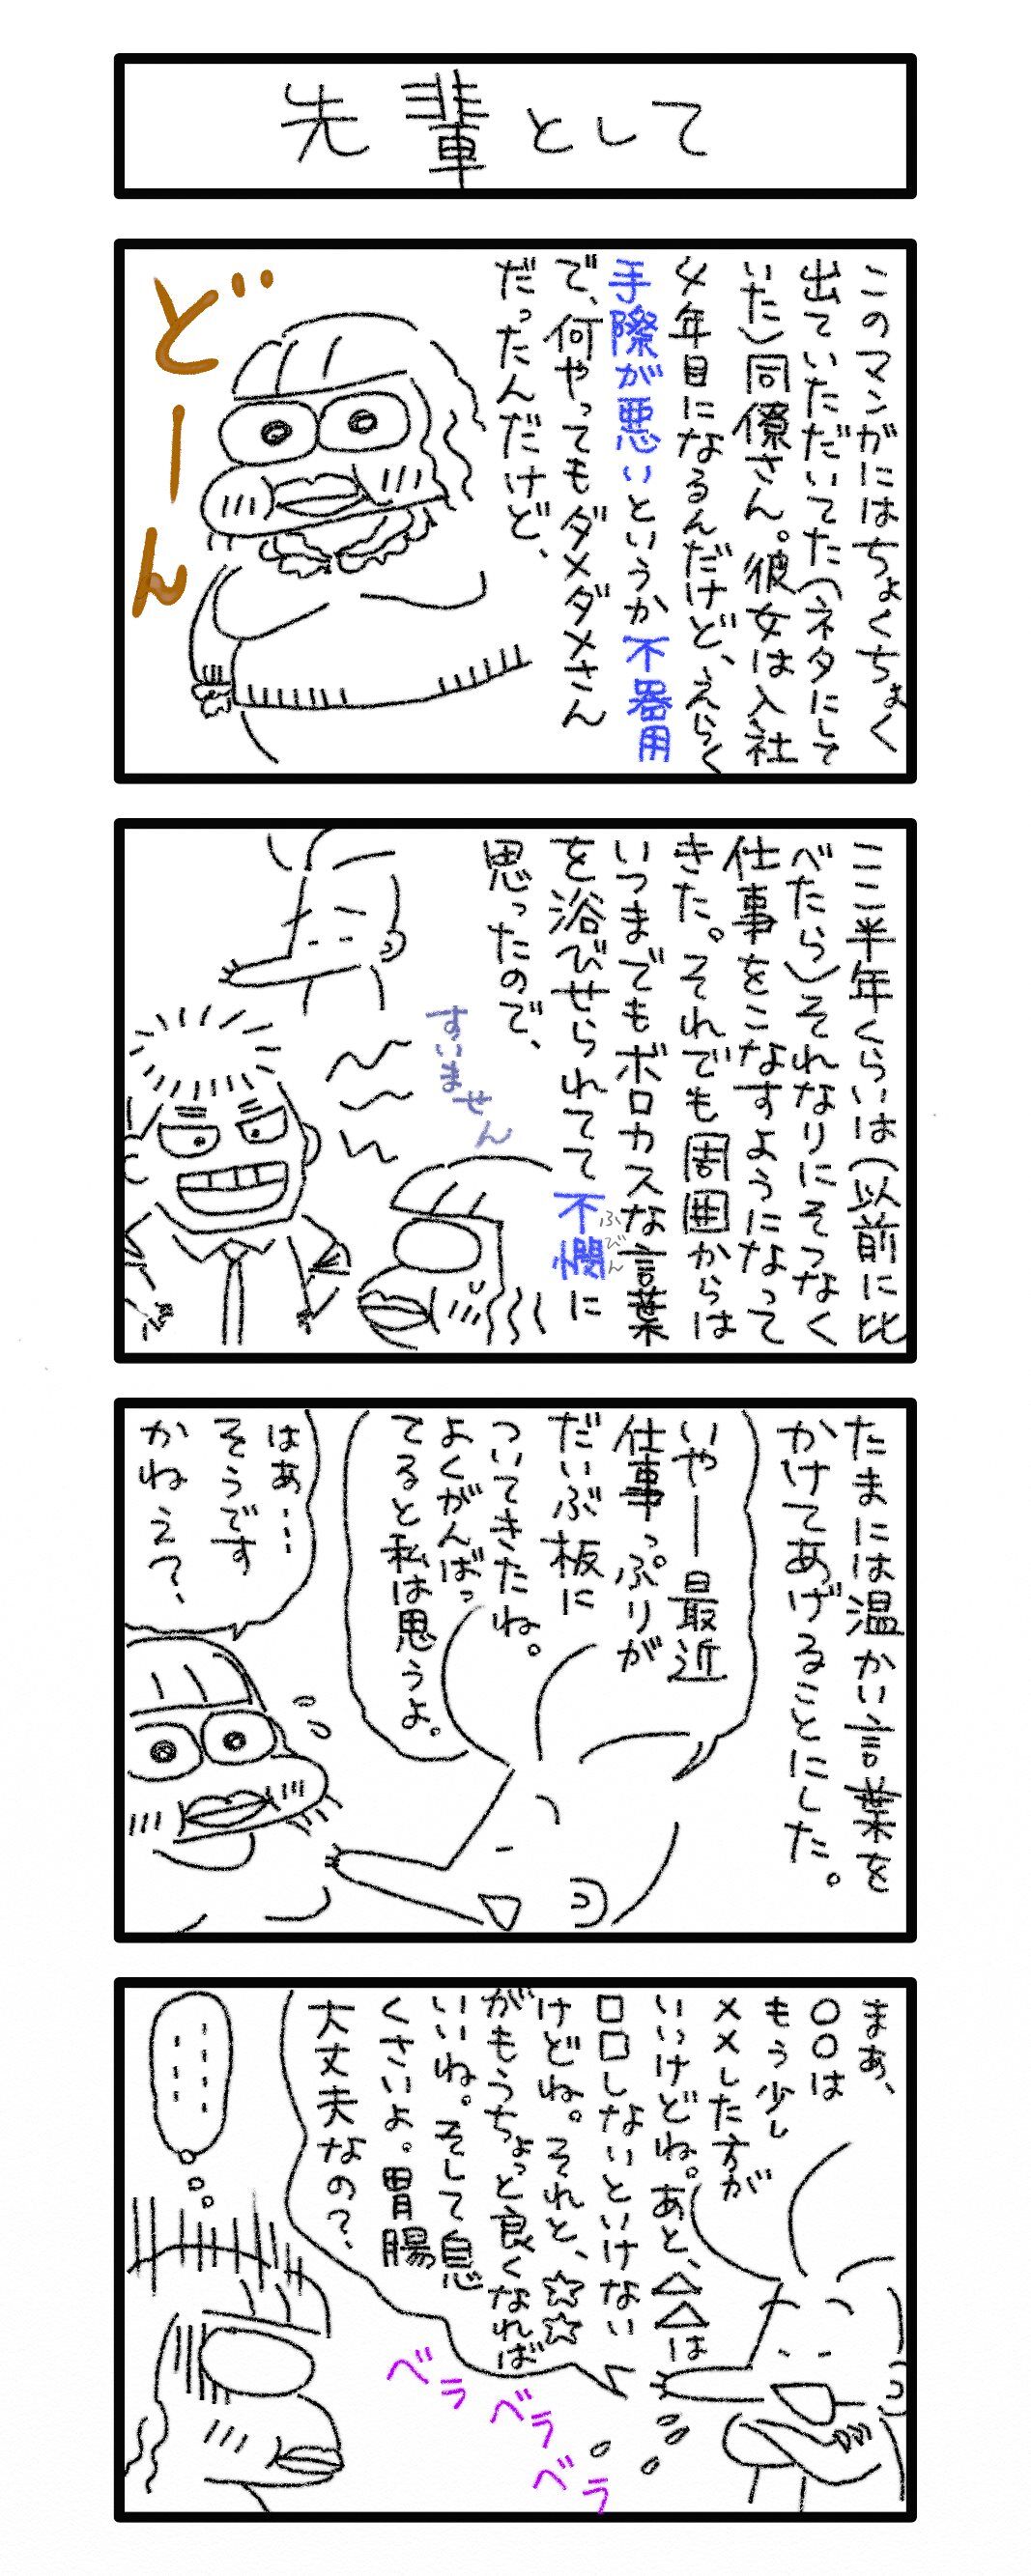 先輩として
このマンがにはちょくちょく
出ていただいてた(ネタにして
いた)同僚さん。彼女は入社
4年目になるんだけど、えらく
手際が悪いというか不器用
で、何やってもダメダメさん
だったんだけど、
どーん
ここ半年くらいは(以前に比
べたら)それなりにそつなく
仕事をこなすようになって
きた。それでも周囲からは
いつまでもボロカスな言葉
を浴びせられてて不憫に
ふびん
思ったので、
すいません
たまには温かい言葉を
かけてあげることにした。
いやー最近
仕事っぷりが
だいぶ板に
ついてきたね。
よくがんばっ
てると私は思うよ。
はあ…
そうです
かねえ?、
まぁ、
〇〇は
もう少し
××した方が
いいけどね。あと、△△は
□□しないといけない
けどね。それと、☆☆
がもうちょっと良くなれば
いいね。そして息
くさいよ。胃腸
大丈夫なの?、
ベラ
ベラ
ベラ